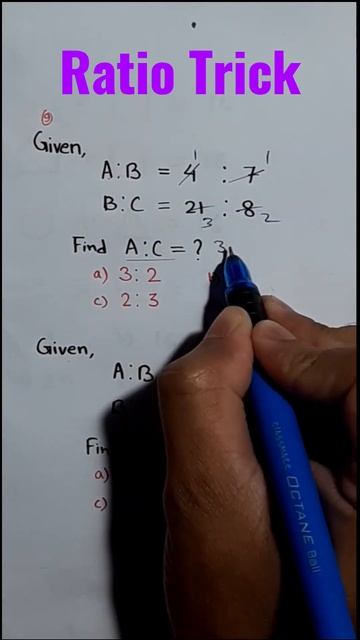 Ratio Trick
9
Given,
1 1
A:B = 4 : 7
B:C = 21 : 8
3 2
Find A:C = ? 3
a) 3:2
c) 2:3
Given,
A:B
Fin
a)
c)
classmate OCTANE Ball